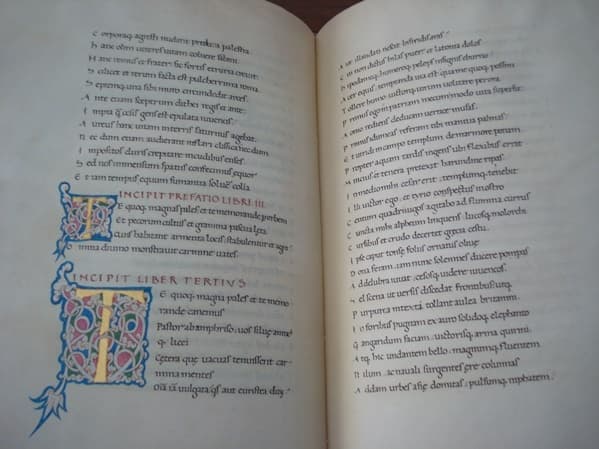 C orporaq; agresti nudant predura palestra.
H anc olim ueteres uitam coluere sabini.
H anc remus et frater: sic fortis etruria creuit:
S cilicet et rerum facta est pulcherrima roma.
S eptemq; una sibi muro circumdedit arces.
A nte etiam sceptrum dicthei regis et ante
I mpia cesis gens est epulata iuuencis.
A ureus hanc uitam in terris saturnus agebat.
N ec dum etiam audierant inflari classica: nec dum
I mpositos duris crepitare incudibus enses.
S ed nos immensum spatiis confecimus equor
E t iam tempus equum fumantia soluere colla
INCIPIT PREFATIO LIBRI III.
TE quoq; magna pales et te memorande per hem
Et pecorum cultus et gramina pascua leta
cuis habitant armenta locis: stabulentur et agni
omnia diuino monstrauit carmine uates.
INCIPIT LIBER TERTIVS
TE quoq; magna pales et te memo
rande canemus
Pastor ab amphriso: uos silue amnes
q; licei
Cetera que uacuas tenuissent car
mina mentes
Omia uulgata: qs aut euristea duy
A ut illaudati nescit busiridis aras?
C ui non dictus hilas puer et latonia delos
H ypodameq; humeroq; pelops insignis eburno
A cer equis: temptanda uia est: qua me quoq; possim
T ollere humo uictorq; uirum uolitare per ora.
P rimus ego in patriam mecum modo uita supersit:
A onio rediens deducam uertice musas.
P rimus idumeas referam tibi mantua palmas.
E t uiridi in campo templum de marmore ponam.
P ropter aquam tardis ingens ubi flexibus errat
M incius et tenera pretexit harundine ripas.
I n medio mihi cesar erit: templumq; tenebit.
I lli uictor ego: et tyrio conspectus in ostro
C entum quadriiugos agitabo ad flumina currus
C uncta mihi alpheum linquens: lucosq; molorchi
C ursibus et crudo decernet grecia cestu.
I pse caput tonse foliis ornatus oliue
D ona feram. iam nunc solemnes ducere pompas
A d delubra iuuat: cesosq; uidere iuuencos.
V el scena ut uersis discedat frontibus: utq;
P urpurea intexti tollant aulea britanni.
I n foribus pugnam ex auro solidoq; elephanto
G angaridum faciam: uictorisq; arma quirini.
A tq; hic undantem bello: magnumq; fluentem
N ilum: ac nauali surgentes ere columnas
A ddam urbes asie domitas: pulsumq; niphatem.